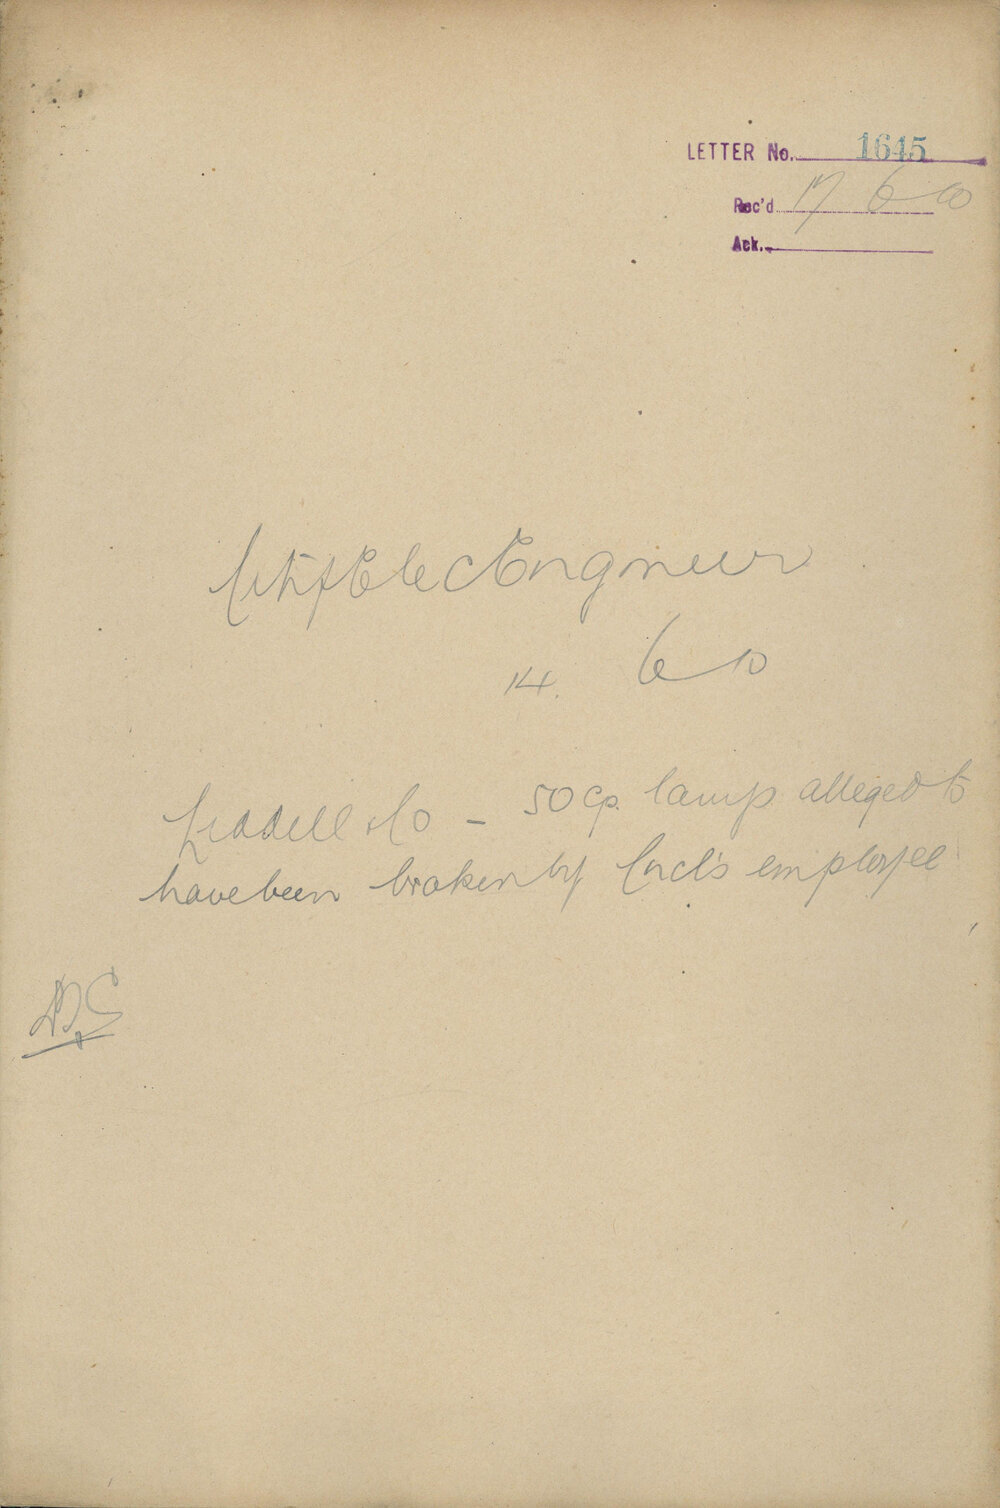 LETTER No. 1645
Rec'd 17 6 10
Ack.
City Elec Engineer
14. 6 10
Liddell & Co - 50 cp. lamp alleged to
have been broken by Cncl's employee